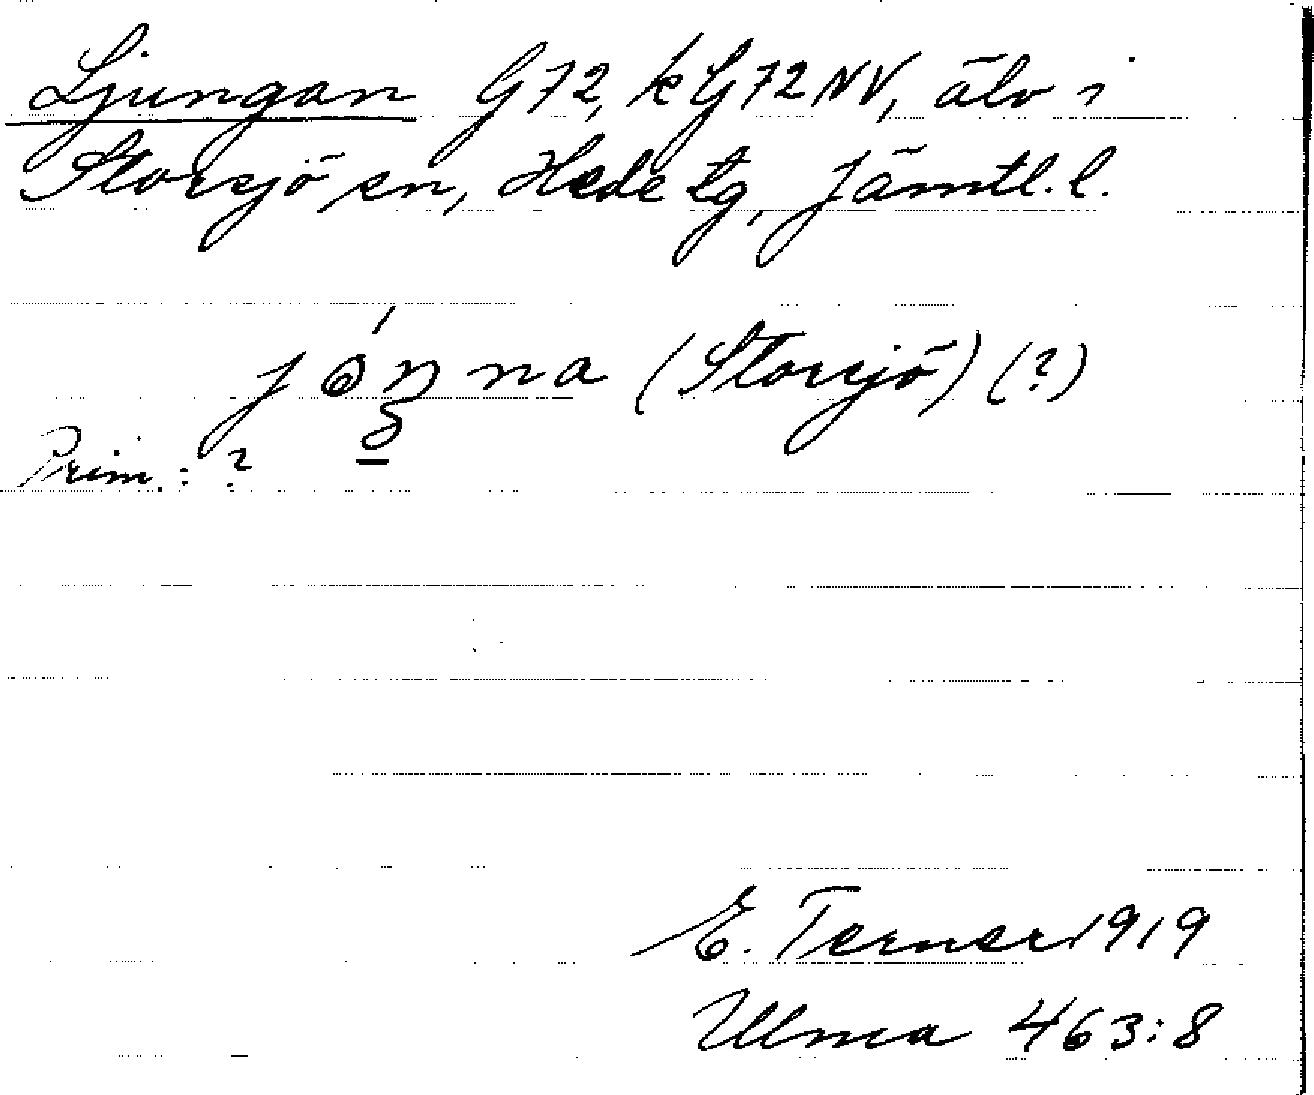 Ljungan G72, kG72NV, älv i
Storsjö sn, Hede tg, Jämtl. l.
(Storsjö) (?)
Prim.: ?
E. Terner 1919
Ulma 463:8